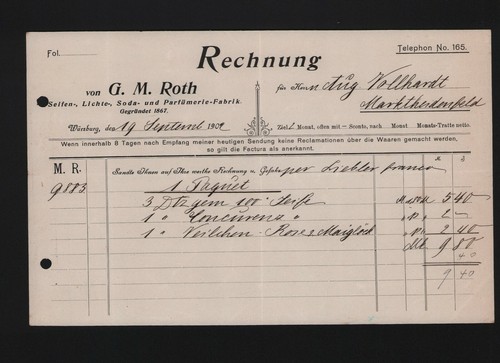 Fol.
Rechnung
Telephon No. 165.
von G. M. Roth
für Herrn Aug Vollhardt
Seifen-, Lichte-, Soda- und Parfümerie-Fabrik.
Marktheidenfeld
Gegründet 1867.
Würzburg, den 19 Septemb 190
Ziel: Monat, offen mit — Sconto, nach Monat Monats-Tratte netto.
Wenn innerhalb 8 Tagen nach Empfang meiner heutigen Sendung keine Reclamationen über die Waaren gemacht werden, so gilt die Factura als anerkannt.
M. R.
Sandte Ihnen auf Ihre werthe Rechnung u. Gefahr per franco
9883
1 Paquet
3 Dtz gem Seife 5 40
1 " Concurenz " 2 —
1 " Veilchen- Rose & Maiglöck 2 40
9 80
40
9 40